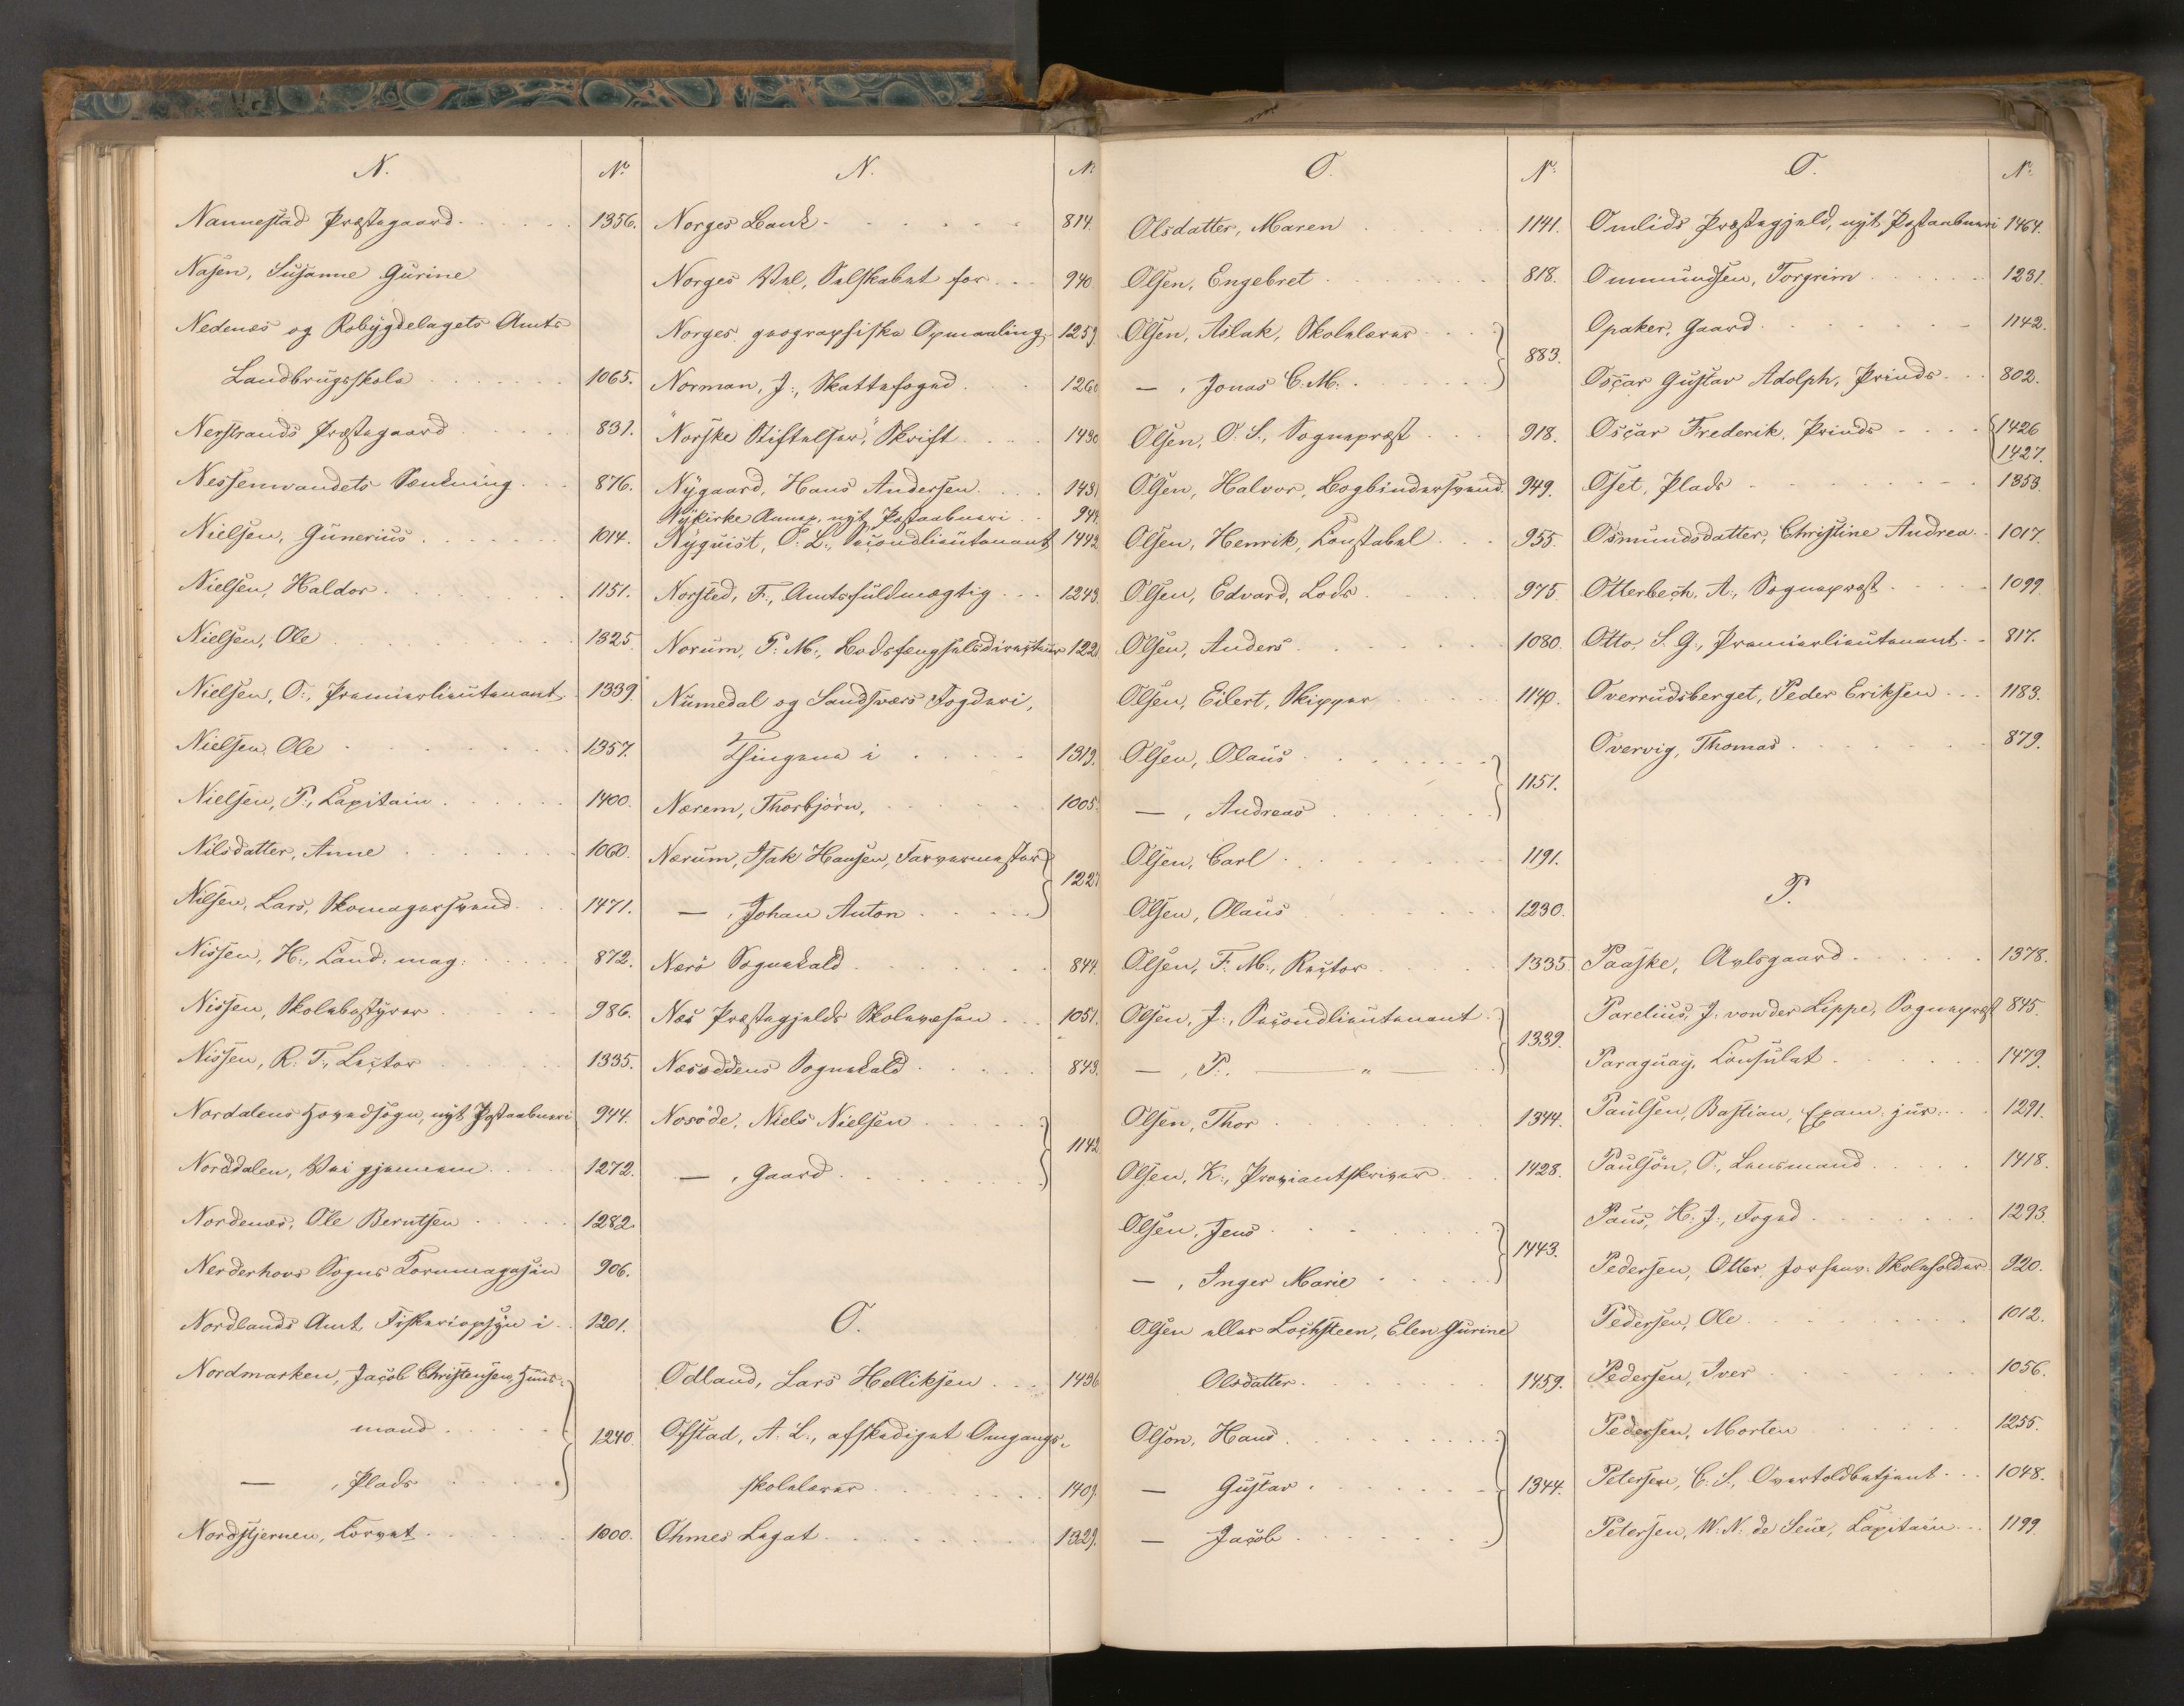 N. Nº
Nannestad Præstegaard 1356.
Nasen, Susanne Gurine
Nedenæs og Robygdelagets Amts
Landbrugsskole 1065.
Nerstrands Præstegaard 831.
Nessenvandets Sænkning 876.
Nielsen, Gunerius 1014.
Nielsen, Haldor 1151.
Nielsen, Ole 1325.
Nielsen, O:, Premierlieutenant 1339.
Nielsen, Ole 1357.
Nielsen, P:, Capitain 1400.
Nilsdatter, Anne 1060.
Nilsen, Lars, Skomagersvend 1471.
Nissen, H:, Cand: mag: 872.
Nissen, Skolebestyrer 986.
Nissen, R: T:, Lector 1335.
Nordalens Hovedsogn, nyt Postaabneri 944.
Norddalen, Vei gjennem 1272.
Nordenæs, Ole Berntsen 1282.
Norderhovs Sogns Kornmagasin 906.
Nordlands Amt, Fiskeriopsyn i 1201.
Nordmarken, Jacob Christensen, Huus-
mand
— , Plads 1240.
Nordstjernen, Corvet 1000.
N. Nº
Norges Bank 814.
Norges Vel, Selskabet for 940.
Norges geographiske Opmaaling 1259.
Norman, J:, Skattefoged 1260
"Norske Stiftelser", Skrift 1430
Nygaard, Hans Andersen 1431
Nykirke Annex, nyt Postaabneri 944.
Nyquist, O: L:, Secondlieutenant 1442
Norsted, F:, Amtsfuldmægtig 1243.
Norum, P: M:, Bodsfængselsdirecteur 122
Numedal og Sandsværs Fogderi,
Thingene i 1319.
Nærem, Thorbjörn, 1005.
Nærum, Isak Hansen, Farvermester
— , Johan Anton 122
Nærö Sognekald 844.
Næs Præstegjelds Skolevæsen 1051.
Næsoddens Sognekald 843.
Nosöde, Niels Nielsen
— , Gaard 1142
O.
Odland, Lars Helliksen 1436
Ofstad, A: L:, afskediget Omgangs-
skolelærer 1409.
Ohmes Legat 1329.
O. Nº
Olsdatter, Maren 1141.
Olsen, Engebret 818.
Olsen, Aslak, Skolelærer
— , Jonas C. M: 883.
Olsen, O. S., Sognepræst 918.
Olsen, Halvor, Bogbindersvend 949.
Olsen, Henrik, Konstabel 955.
Olsen, Edvard, Lods 975.
Olsen, Anders 1080.
Olsen, Eilert, Skipper 1140.
Olsen, Olaus
— , Andreas 1151.
Olsen, Carl 1191.
Olsen, Olaus 1230.
Olsen, F. M:, Rector 1335
Olsen, J:, Secondlieutenant
— , P. — " — 1339.
Olsen, Thor 1344.
Olsen, K:, Proviantskriver 1428.
Olsen, Jens
— , Inger Marie 1443.
Olsen eller Lochsteen, Elen Gurine
Olsdatter 1459.
Olson, Hans
— Gustav
— Jacob 1344.
O. Nº
Omlids Præstegjeld, nyt Postaabneri 1464.
Ommundsen, Torgrim 1231.
Opaker, Gaard 1142.
Oscar Gustav Adolph, Prinds 802.
Oscar Frederik, Prinds 1426
1427.
Oset, Plads 1353.
Osmundsdatter, Christine Andrea 1017.
Otterbech, A:, Sognepræst 1099.
Otto, S. G., Premierlieutenant 817.
Overrudsberget, Peder Eriksen 1183.
Overvig, Thomas 879.
P.
Paaske, Avlsgaard 1378.
Parelius, J: von der Lippe, Sognepræst 845.
Paraguay, Consulat 1479.
Paulsen, Bastian, Exam: jur: 1291.
Paulsön, O:, Lensmand 1418.
Paus, H: J:, Foged 1293.
Pedersen, Otter, forhenv: Skoleholder 920.
Pedersen, Ole 1012.
Pedersen, Iver 1056.
Pedersen, Morten 1255.
Petersen, C. S., Overtoldbetjent 1048.
Petersen, W. N. de Seue, Capitain 1199.